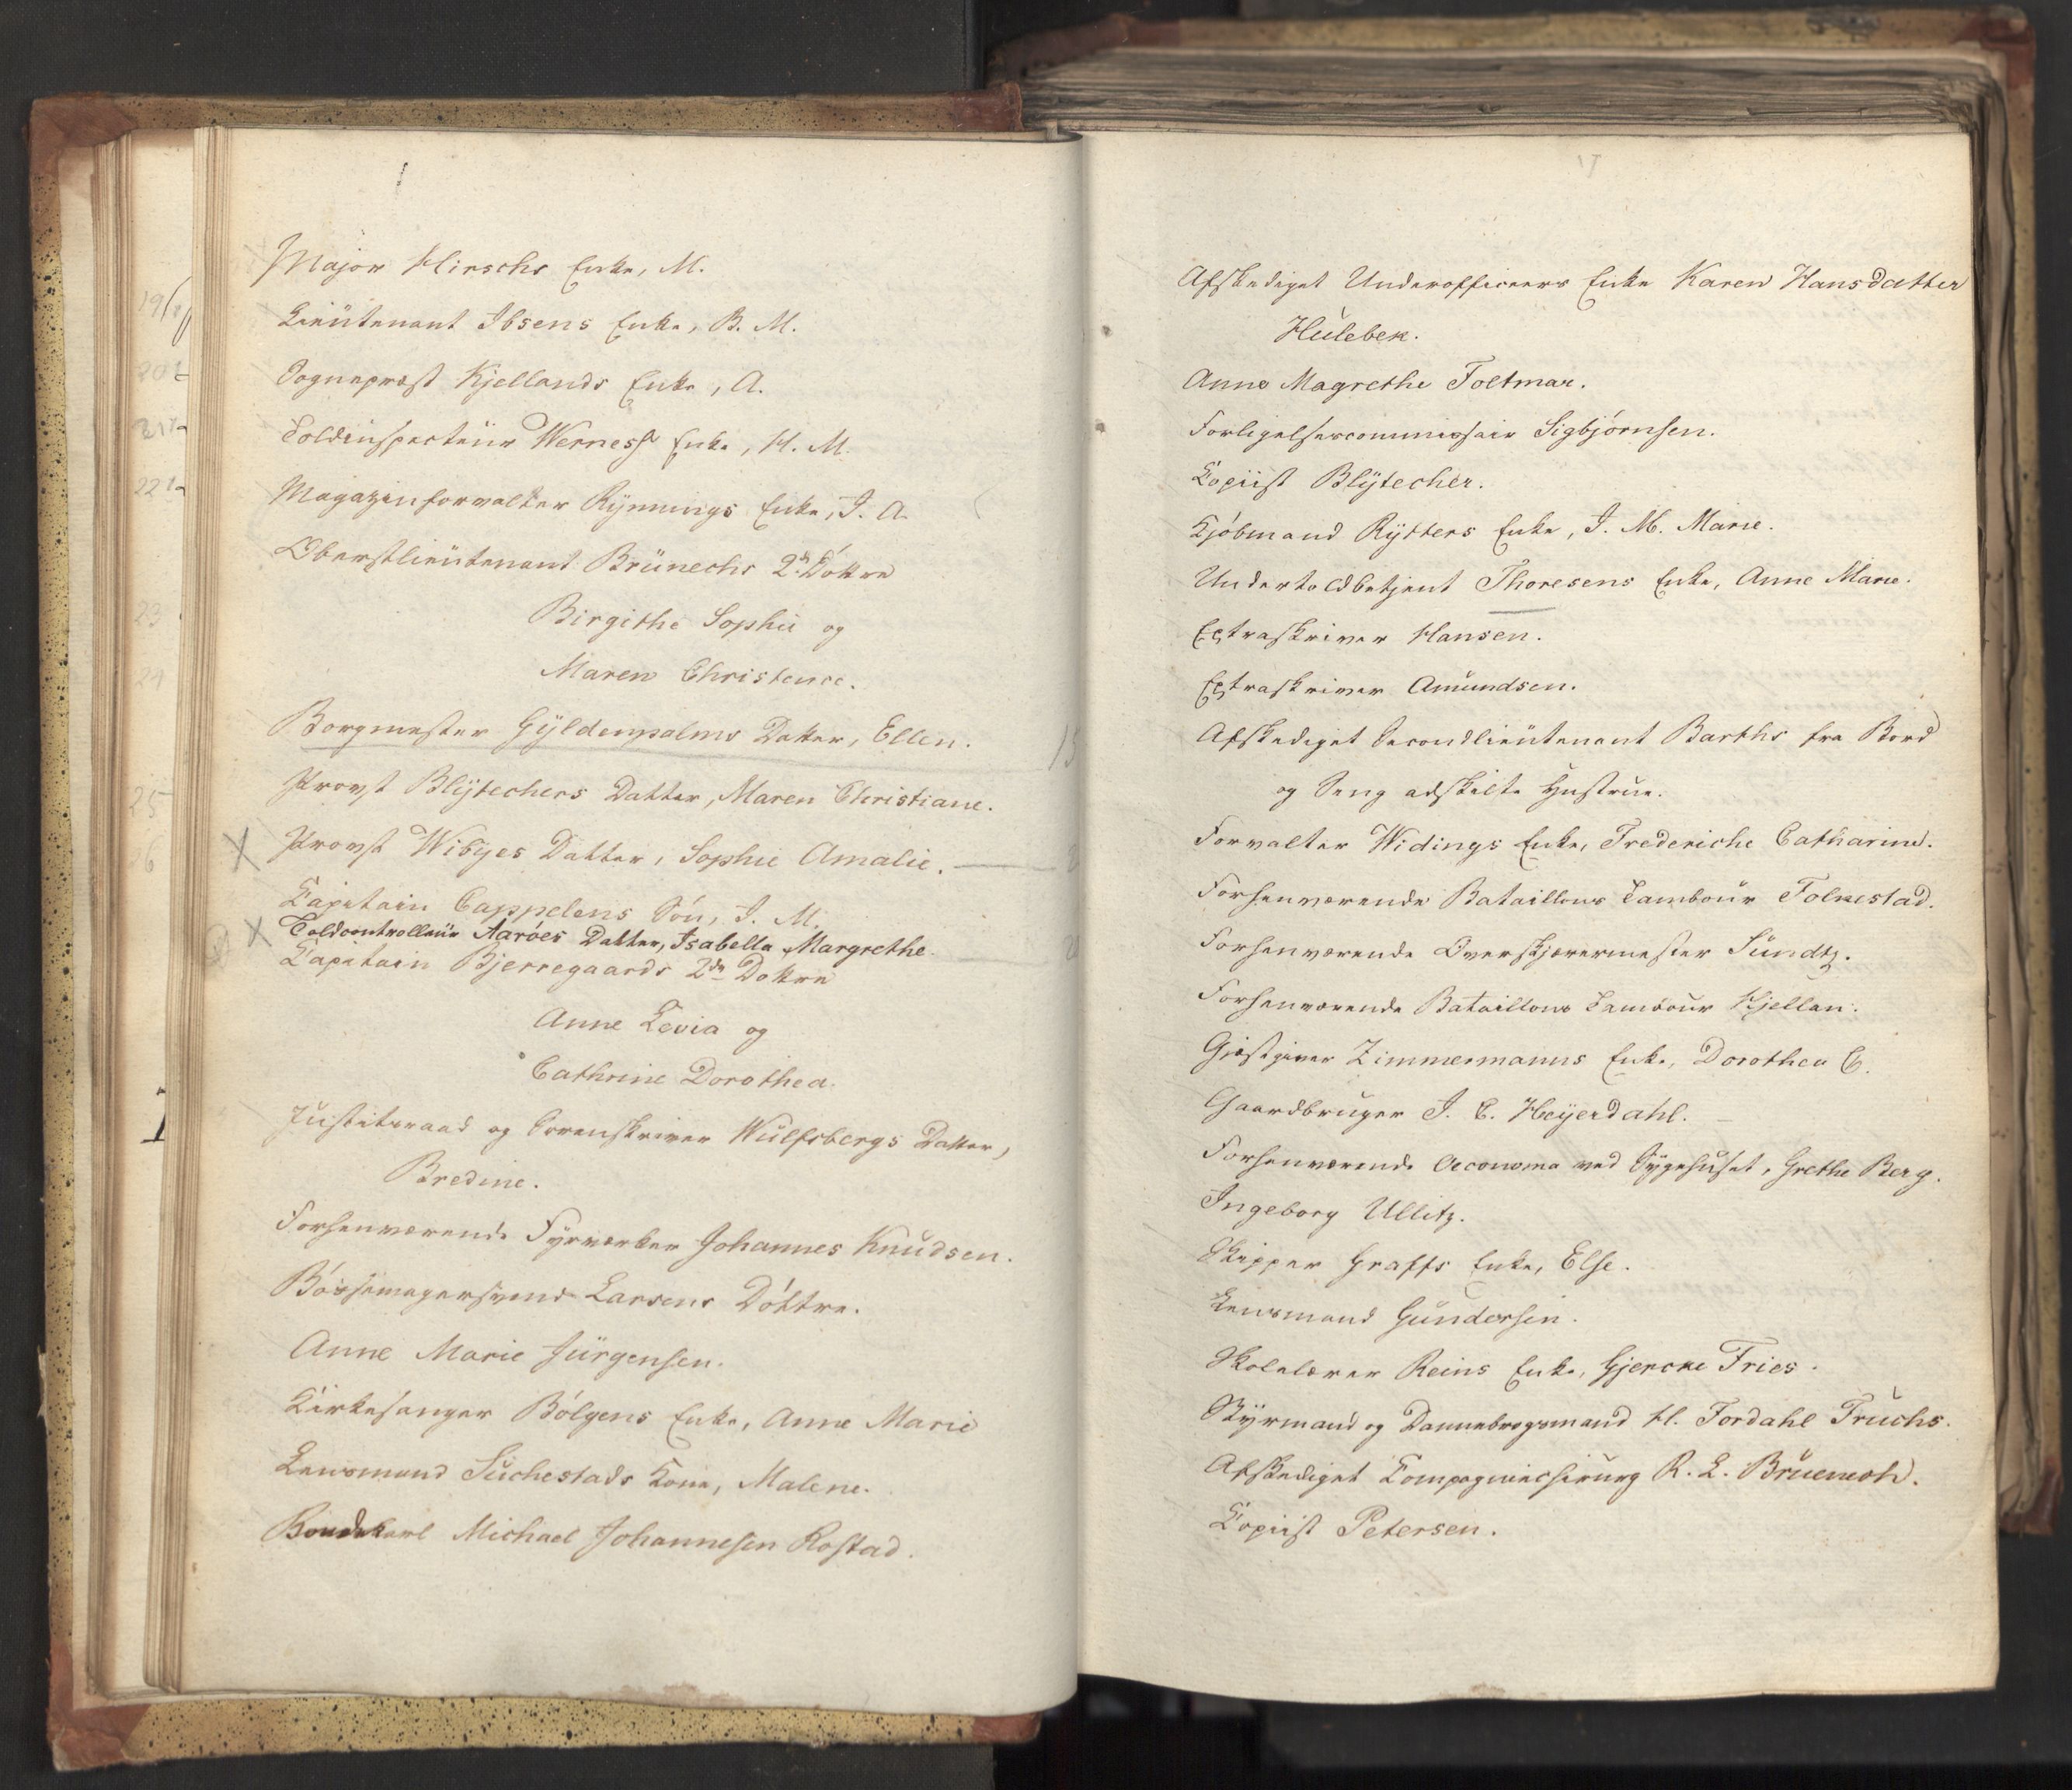 Major Hirschs Enke, M.
Lieutenant Ibsens Enke, B. M.
Sognepræst Kjellands Enke, A.
Toldinspecteur Werness Enke, H. M.
Magazinforvalter Rynnings Enke, J. A.
Oberstlieutenant Brünechs 2de Döttre
Birgithe Sophie og
Maren Christence.
Borgmester Gyldenpalms Datter, Ellen.
Provst Blÿtechers Datter, Maren Christiane.
Provst Wibÿes Datter, Sophie Amalie.
Capitain Cappelens Søn, J. M.
Toldcontrolleur Aaröes Datter, Isabella Margrethe.
Capitain Bjerregaards 2de Döttre
Anne Levia og
Cathrine Dorothea.
Justitsraad og Sorenskriver Wulfsbergs Datter,
Bredine.
Forhenværende Fyrverker Johannes Knudsen.
Bössemagersvend Larsens Döttre.
Anne Marie Jürgensen.
Kirkesanger Bölgens Enke, Anne Marie
Lensmand Suchestads Kone, Malene.
Bondekarl Michael Johannesen Rostad.
Afskediget Underofficeers Enke Karen Hansdatter
Hulebek.
Anne Magrethe Toltmar.
Forligelsescommissair Sigbjørnsen.
Copiist Blÿtecher.
Kjöbmand Rÿtters Enke, J. M. Marie.
Undertoldbetjent Thoresens Enke, Anne Marie.
Extraskriver Hansen.
Extraskriver Amundsen.
Afskediget Secondlieutenant Barths fra Bord
og Seng adskilte Hustrue.
Forvalter Widings Enke, Frederiche Catharine.
Forhenværende Bataillons Tambour Folkestad.
Forhenværende Overskjærermester Sundtz.
Forhenværende Bataillons Tambour Kjellan.
Gjæstgiver Zimmermanns Enke, Dorothea C.
Gaardbruger J. C. Heÿerdahl.
Forhenværende Oeconoma ved Sygehuset, Grethe Berg.
Ingeborg Ullitz.
Skipper Graffs Enke, Else.
Lensmand Gundersen.
Skolelærer Reins Enke, Gjercke Fries.
Styrmand og Dannebrogsmand H. Fordahl Truchs.
Afskediget Compagniechirurg R. L. Bruenech.
Copiist Petersen.